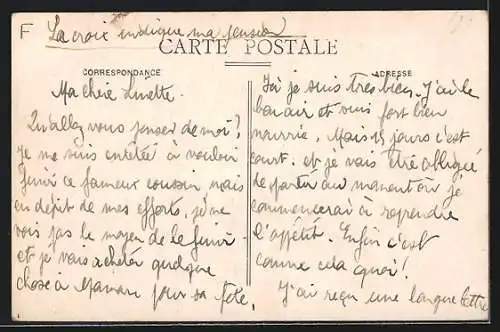 F La croix indique ma pension
CARTE POSTALE
CORRESPONDANCE
Ma chère Linette.
Qu'allez vous penser de moi?
Je me suis entêtée à vouloir
finir ce fameux coussin, mais
en dépit de mes efforts, je ne
vois pas le moyen de le finir
et je vais acheter quelque
chose à Maman pour sa fête.
ADRESSE
Ici je suis très bien. J'ai le
bon air et suis fort bien
nourrie. Mais 15 jours c'est
court. et je vais être obligée
de partir au moment où je
commencerai à reprendre
l'appétit. Enfin c'est
comme cela quoi!
J'ai reçu une longue lettre